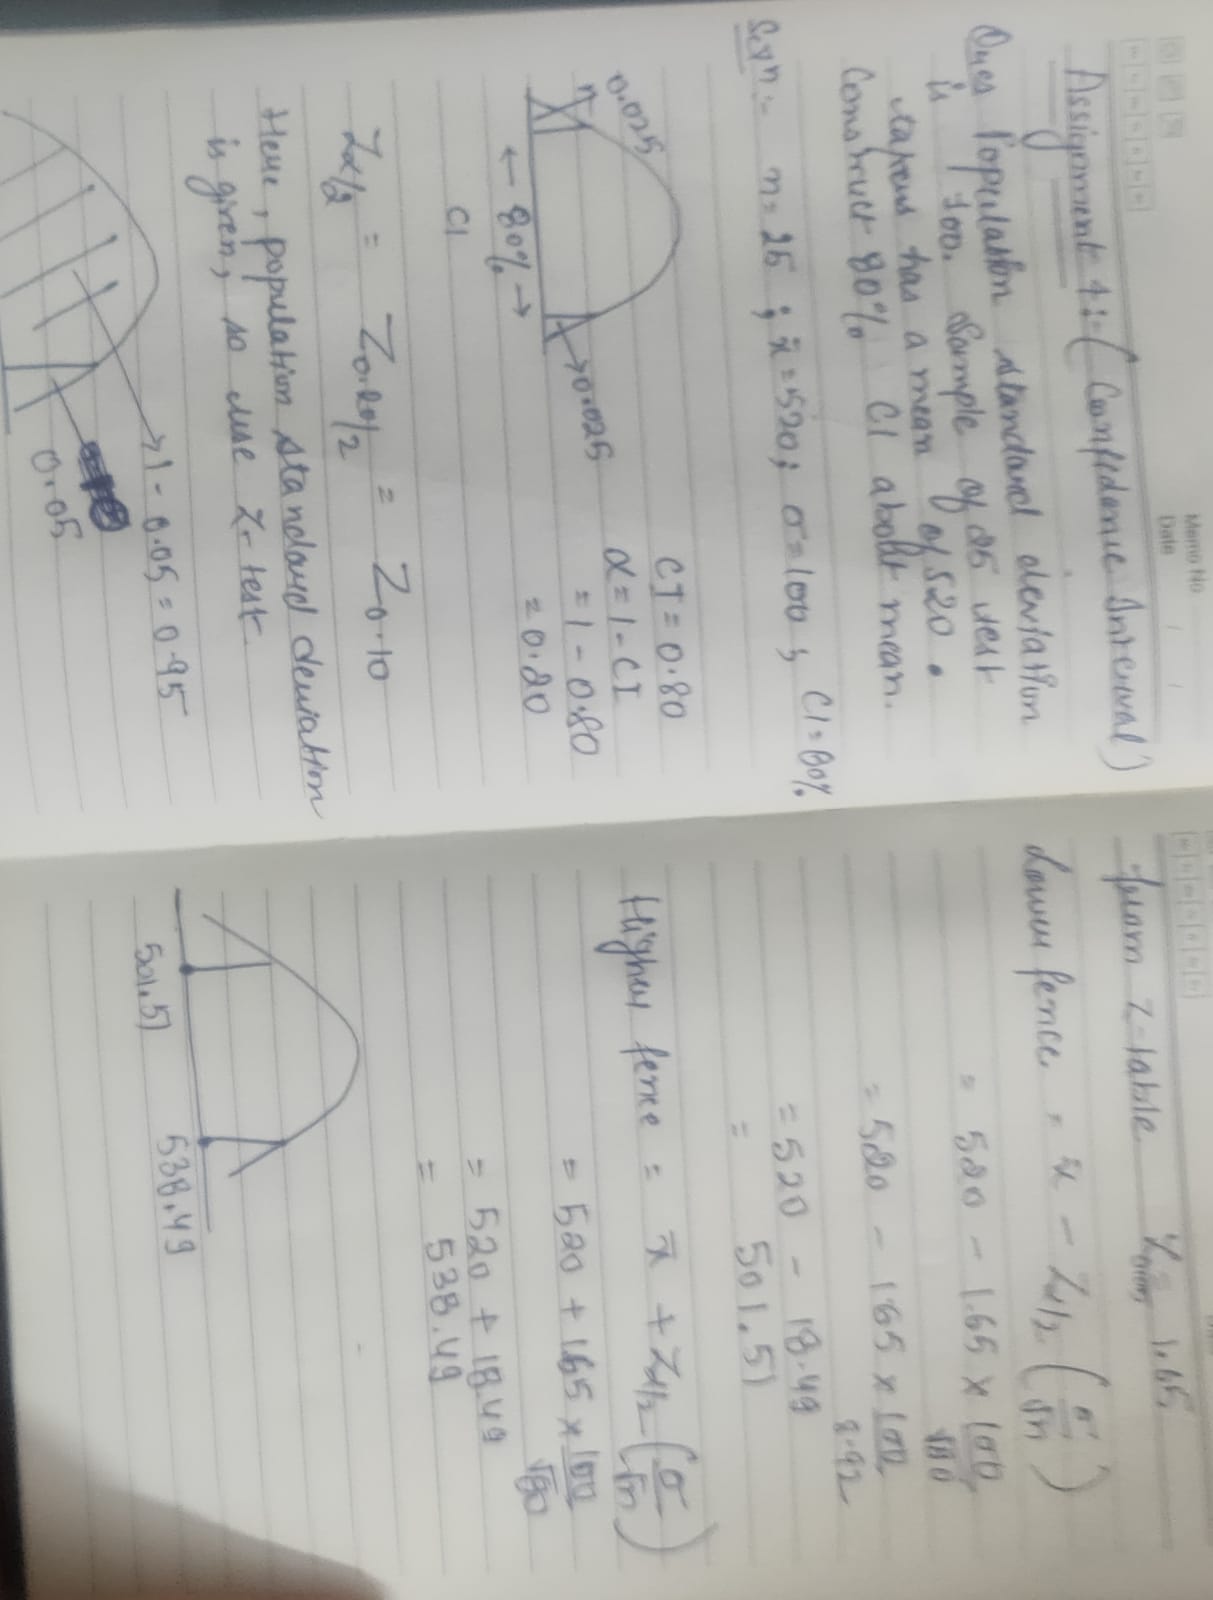 Memo No
Date / /
Assignment 4:- (Confidence Interval)
Ques Population standard deviation
is 100. Sample of 25 test
takers has a mean of 520.
Construct 80% CI about mean.
Solⁿ:- n=25 ; x̄=520; σ=100 ; CI=80%
0.025
CI = 0.80
α = 1 - CI
= 1 - 0.80
= 0.20
→0.025
← 80% →
CI
Zα/2 = Z0.20/2 = Z0.10
Here, population standard deviation
is given, so use Z-test.
→ 1 - 0.05 = 0.95
0.05
from Z-table 1.65
Lower fence = x̄ - Zα/2 (σ/√n)
= 520 - 1.65 × 100/√80
= 520 - 165 × 100/8.92
= 520 - 18.49
= 501.51
Higher fence = x̄ + Zα/2 (σ/√n)
= 520 + 165 × 100/√80
= 520 + 18.49
= 538.49
501.51 538.49